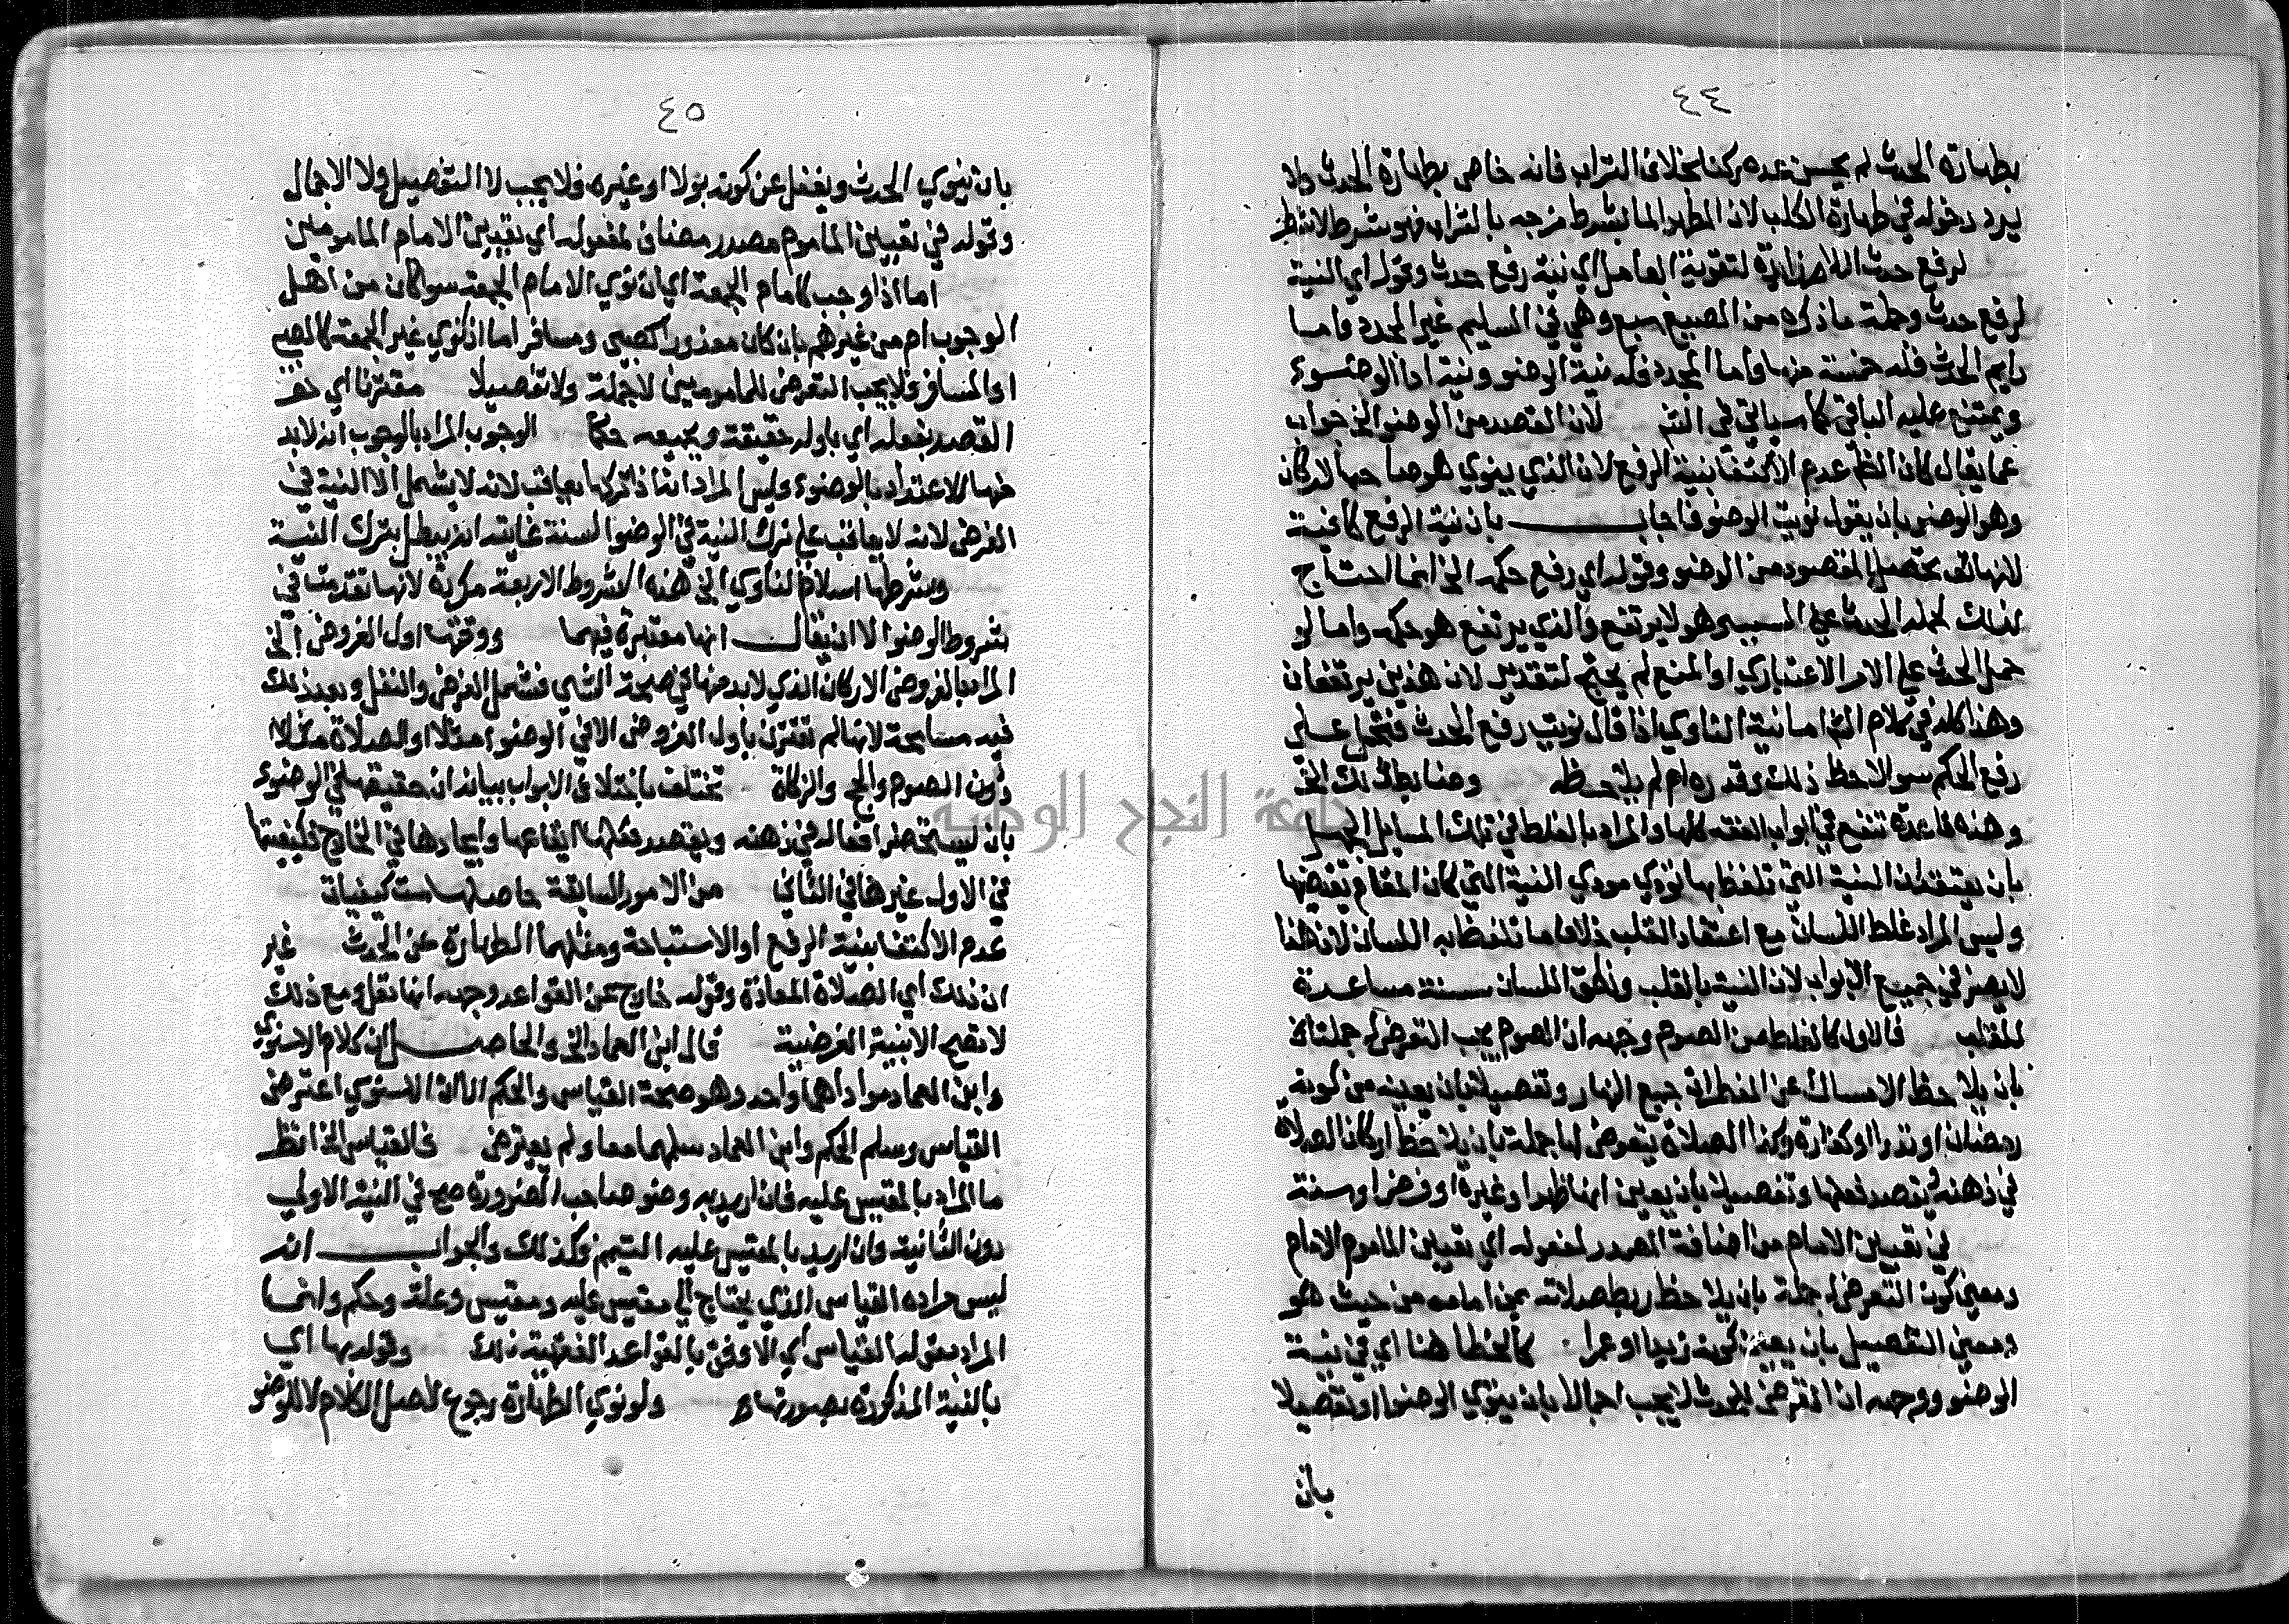 ٤٤
بطهارة الحدث لم يحسن عده ركنا بخلاف التراب فانه خاص بطهارة الحدث ولا
يرد دخوله في طهارة الكلب لان المطهر الما بشرط مزجه بالتراب فهو شرط لا شطر
لرفع حدث اللام زايدة لتقوية العامل اي نية رفع حدث وقوله اي النية
لرفع حدث وجملة ما ذكره من الصيغ سبع وهي في السليم غير المجدد واما
دايم الحدث فله خمسة منها واما المجدد فله نية الوضو ونية اداء الوضوء
ويمتنع عليه الباقي كما سياتي في الشر لان القصد من الوضو الخ جواب
عما يقال كان الظ عدم الاكتفا بنية الرفع لان الذي ينوي هو صاحب الاركان
وهو الوضو بان يقول نويت الوضو فاجاب بان نية الرفع كافية
لانها التى تحصل المقصود من الوضو وقوله اي رفع حكمه الخ انما احتاج
لذلك لحمله الحدث على السبب وهو لا يرتفع والذي يرتفع هو حكمه واما لو
حمل الحدث على الامر الاعتباري او المنع لم يحتج لتقدير لان هذين يرتفعان
وهذا كله في كلام الشر اما نية الناوي اذا قال نويت رفع الحدث فتحمل على
رفع الحكم سوا لاحظ ذلك وقدره ام لم يلاحظه وضابط ذلك الخ
وهذه قاعدة تنفع في ابواب الفقه كلها والمراد بالغلط في تلك المسايل الجهل
بان يعتقد ان النية التي تلفظ بها تودي مودي النية التي كان المقام يقتضيها
وليس المراد غلط اللسان مع اعتقاد القلب خلاف ما تلفظ به اللسان لان هذا
لا يضر في جميع الابواب لان النية بالقلب ونطق اللسان سنة مساعدة
للقلب فالاول كالغلط من الصوم وجهه ان الصوم يجب التعرض له جملتان
بان يلاحظ الامساك عن المفطر في جميع النهار وتفصيلا بان يعينه من كونه
رمضان او نذرا او كفارة وكذا الصلاة يتعرض لها جملة بان يلاحظ اركان الصلاة
في ذهنه ويقصد فعلها وتفصيلا بان يعين انها ظهرا وغيره او فرضا وسنة
في تعيين الامام من اضافة المصدر لمفعوله اي تعيين الماموم الامام
ومعنى كونه التعرض له جملة بان يلاحظ ربط صلاته بمن امامه من حيث هو
ومعنى التفصيل بان يعين كونه زيدا او عمرا كالخطا هنا اي في نية
الوضو ووجهه ان التعرض للحدث لا يجب اجمالا بان ينوي الوضوا او تفصيلا
بان
٤٥
بان ينوي الحدث ويغفل عن كونه بولا او غيره فلا يجب لا التفصيل ولا الاجمال
وقوله في تعيين الماموم مصدر مضاف لمفعوله اي تعيين الامام المامومين
اما اذا وجب كامام الجمعة اي ان نوي الامام الجمعة سوا كان من اهل
الوجوب ام من غيرهم بان كان معذورا كصبى ومسافر اما ان نوي غير الجمعة كالصبي
او المسافر فلا يجب التعرض للمامومين لا جملة ولا تفصيلا مقترنا اي ذلك
القصد بفعله اي باوله حقيقة وبجميعه حكما الوجوب المراد بالوجوب انه لا بد
منها للاعتداد بالوضوء وليس المراد ان تاركها يعاقب لانه لا يشمل الا النية في
الفرض لانه لا يعاقب على ترك النية في الوضوا السنة غايته انه يبطل بترك النية
وشرطها اسلام الناوي الخ هذه الشروط الاربعة مكررة لانها تقدمت في
شروط الوضوا الا ان يقال انها معتبرة فيهما ووقتها اول الفروض الخ
المراد بالفروض الاركان الذي لا بد منها في صحة الشي فشمل الفرض والنفل وبعد ذلك
فيه مسامحة لانها لم تقترن باول الفروض الا في الوضوء مثلا او الصلاة مثلا
دون الصوم والحج والزكاة تختلف باختلاف الابواب بيانه ان حقيقة في الوضوء
بان يستحضر افعاله في ذهنه ويقصد فعلها ايقاعها وايجادها في الخارج فكيفيتها
في الاول غيرها في الثاني من الامور السابقة حاصلها ست كيفيات
عدم الاكتفا بنية الرفع او الاستباحة ومثلهما الطهارة عن الحدث غير
ان ذلك اي الصلاة المعادة وقوله خارج عن القواعد وجهه انها نفل ومع ذلك
لا تصح الا بنية الفرضية قال ابن العماد الخ والحاصل ان كلام الاسنوي
وابن العماد مواداهما واحد وهو صحة القياس والحكم الا ان الاسنوي اعترض
القياس وسلم الحكم وابن العماد سلمهما معا ولم يعترض فالقياس الخ انظر
ما المراد بالمقيس عليه فان اريد به وضو صاحب الضرورة صح في النية الاولى
دون الثانية وان اريد بالمقيس عليه التيمم فكذلك والجواب انه
ليس مراده القياس الذي يحتاج الي مقيس عليه ومقيس وعلة وحكم وانما
المراد بقوله القياس اي الاوفق بالقواعد الفقهية ذلك وقوله بها اي
بالنية المذكورة بصورتها ولو نوي الطهارة رجوع لاصل الكلام لا للوضو